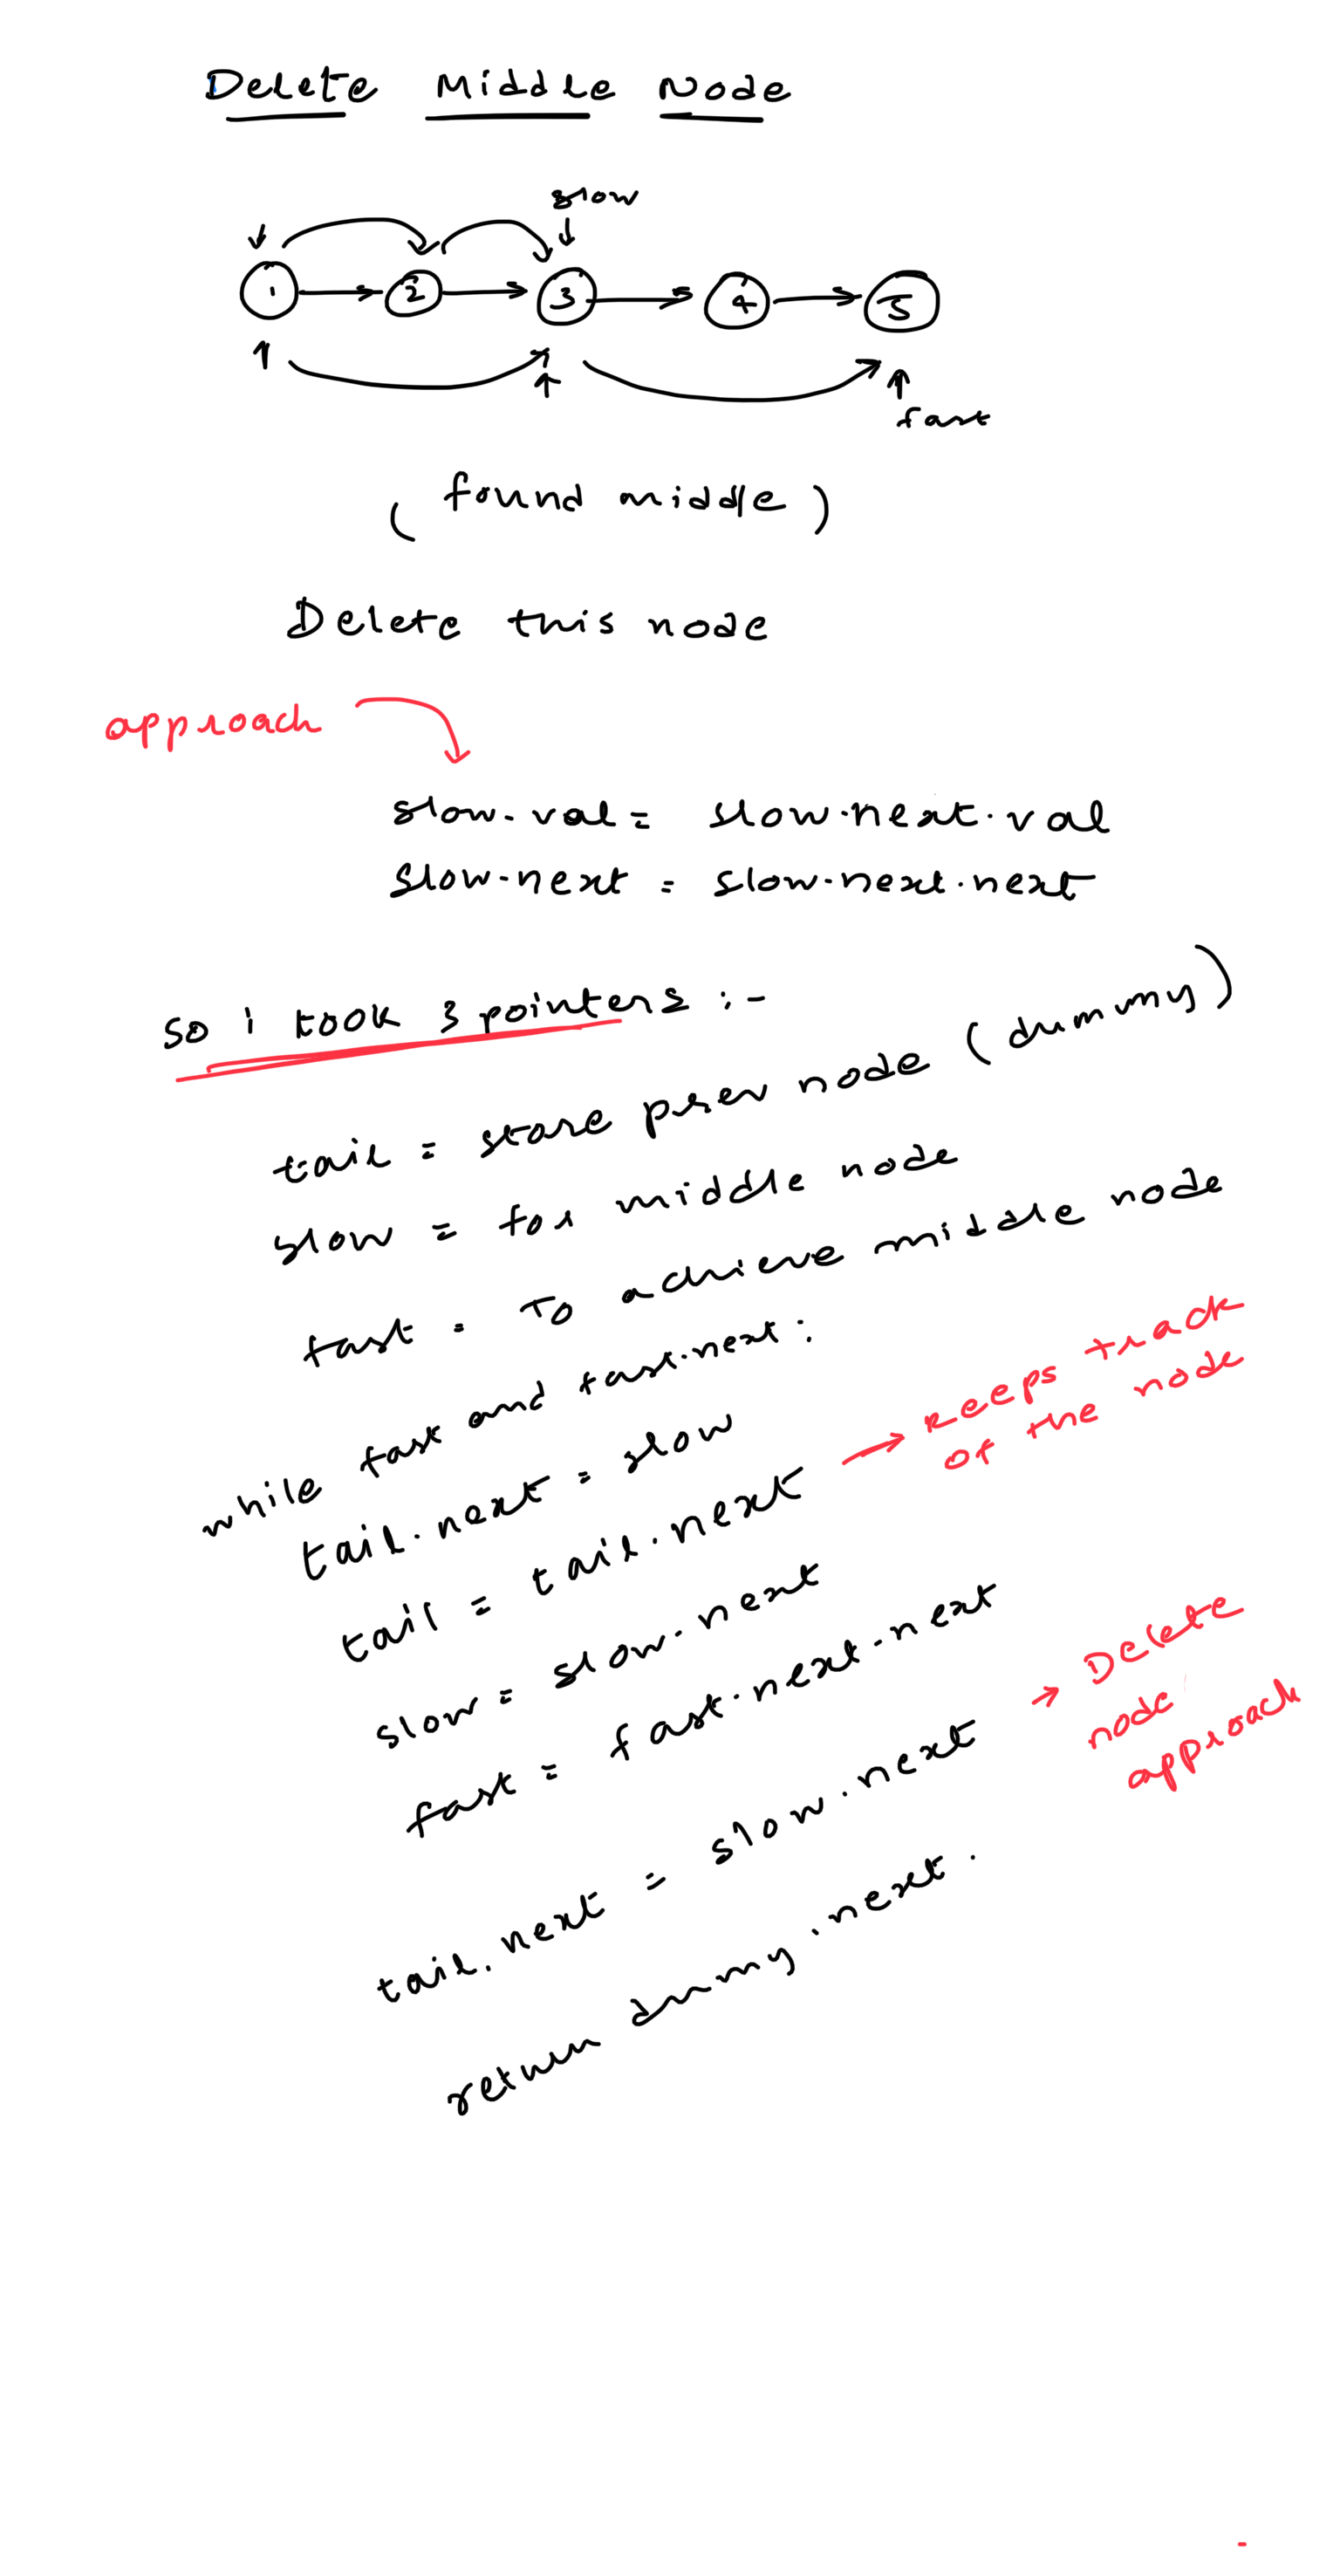 Delete Middle Node
slow
1 2 3 4 5
fast
( found middle )
Delete this node
approach
slow.val = slow.next.val
slow.next = slow.next.next
so i took 3 pointers :-
tail = store prev node (dummy)
slow = for middle node
fast = To achieve middle node
while fast and fast.next :
tail.next = slow
tail = tail.next → keeps track
of the node
slow = slow.next
fast = fast.next.next
tail.next = slow.next → Delete
node
approach
return dummy.next.